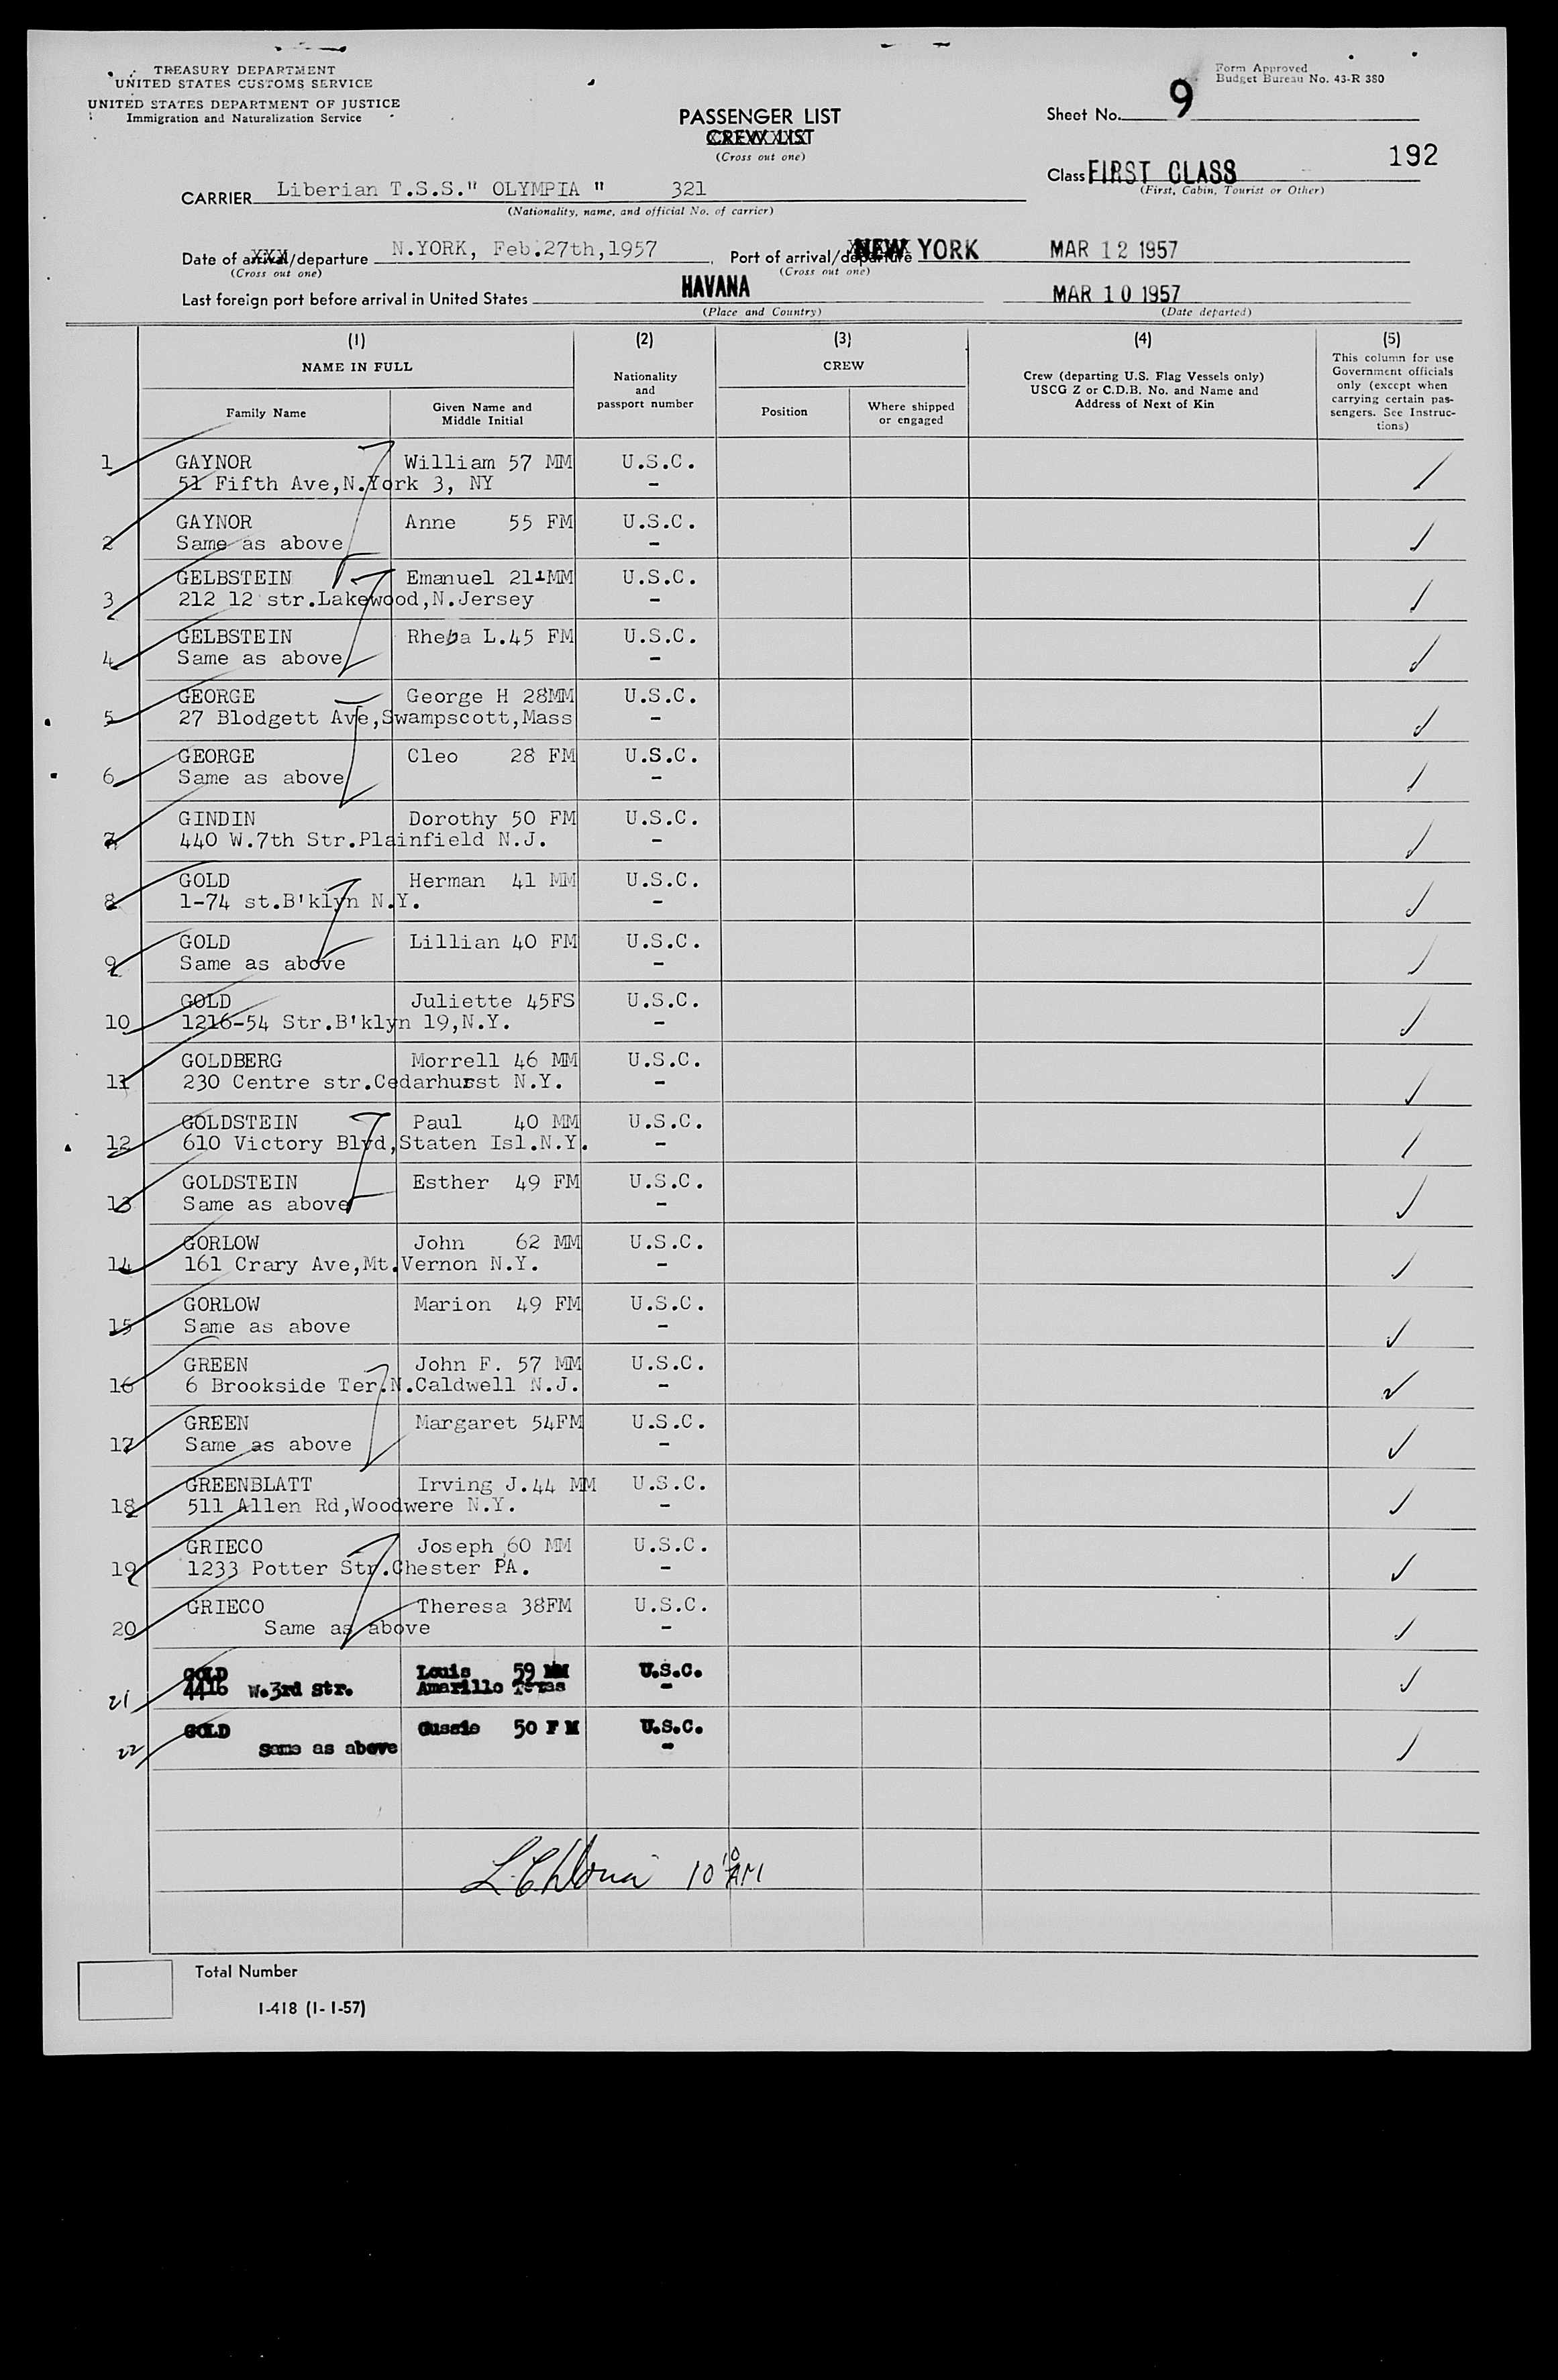 TREASURY DEPARTMENT
UNITED STATES CUSTOMS SERVICE
UNITED STATES DEPARTMENT OF JUSTICE
Immigration and Naturalization Service
Form Approved
Budget Bureau No. 43-R 380
PASSENGER LIST
CREW LIST
(Cross out one)
Sheet No. 9
192
Class FIRST CLASS
(First, Cabin, Tourist or Other)
CARRIER Liberian T.S.S." OLYMPIA " 321
(Nationality, name, and official No. of carrier)
Date of aXXX/departure N.YORK, Feb.27th,1957. Port of arrival/departure NEW YORK MAR 12 1957
(Cross out one) (Cross out one)
Last foreign port before arrival in United States HAVANA MAR 10 1957
(Place and Country) (Date departed)
(1) (2) (3) (4) (5)
NAME IN FULL
Family Name
Given Name and
Middle Initial
Nationality
and
passport number
CREW
Position
Where shipped
or engaged
Crew (departing U.S. Flag Vessels only)
USCG Z or C.D.B. No. and Name and
Address of Next of Kin
This column for use
Government officials
only (except when
carrying certain pas-
sengers. See Instruc-
tions)
1 GAYNOR William 57 MM U.S.C.
51 Fifth Ave,N.York 3, NY -
2 GAYNOR Anne 55 FM U.S.C.
Same as above -
3 GELBSTEIN Emanuel MM U.S.C.
212 12 str.Lakewood,N.Jersey -
4 GELBSTEIN Rheba L.45 FM U.S.C.
Same as above -
5 GEORGE George H 28MM U.S.C.
27 Blodgett Ave,Swampscott,Mass -
6 GEORGE Cleo 28 FM U.S.C.
Same as above -
7 GINDIN Dorothy 50 FM U.S.C.
440 W.7th Str.Plainfield N.J. -
8 GOLD Herman 41 MM U.S.C.
1-74 st.B'klyn N.Y. -
9 GOLD Lillian 40 FM U.S.C.
Same as above -
10 GOLD Juliette 45FS U.S.C.
1216-54 Str.B'klyn 19,N.Y. -
11 GOLDBERG Morrell 46 MM U.S.C.
230 Centre str.Cedarhurst N.Y. -
12 GOLDSTEIN Paul 40 MM U.S.C.
610 Victory Blvd,Staten Isl.N.Y. -
13 GOLDSTEIN Esther 49 FM U.S.C.
Same as above -
14 GORLOW John 62 MM U.S.C.
161 Crary Ave,Mt.Vernon N.Y. -
15 GORLOW Marion 49 FM U.S.C.
Same as above -
16 GREEN John F. 57 MM U.S.C.
6 Brookside Ter.N.Caldwell N.J. -
17 GREEN Margaret 54FM U.S.C.
Same as above -
18 GREENBLATT Irving J.44 MM U.S.C.
511 Allen Rd,Woodwere N.Y. -
19 GRIECO Joseph 60 MM U.S.C.
1233 Potter Str.Chester PA. -
20 GRIECO Theresa 38FM U.S.C.
Same as above -
21 GOLD Louis 59 MM U.S.C.
4416 W.3rd str. Amarillo Texas -
22 GOLD Gussie 50 F M U.S.C.
Same as above -
10 AM
Total Number
I-418 (1-1-57)